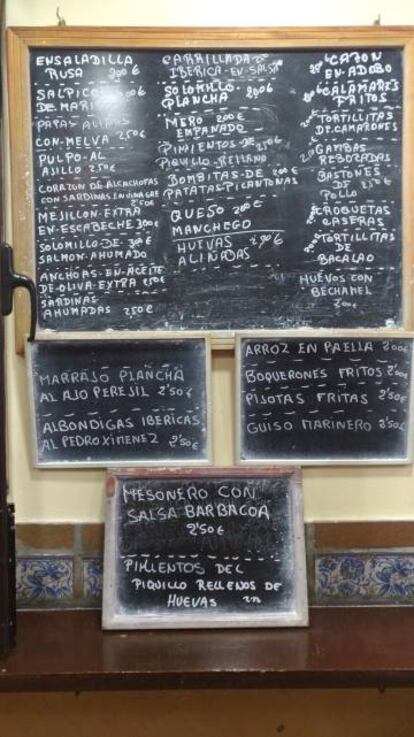 ENSALADILLA
RUSA 200€
SALPICON
DE MARISCO 200€
PAPAS ALIÑAS
CON-MELVA 250€
PULPO-AL
AJILLO 250€
CORAZON DE ALCACHOFAS
CON SARDINAS EN VINAGRE
250€
MEJILLON-EXTRA
EN-ESCABECHE 300€
SOLOMILLO-DE 300€
SALMON-AHUMADO
ANCHOAS-EN-ACEITE
DE-OLIVA-EXTRA 250€
SARDINAS
AHUMADAS 250€
CARRILLADA
IBERICA-EN-SALSA
SOLOMILLO
PLANCHA 200€
MERO 200€
EMPANADO
PIMIENTOS-DE 250€
PIQUILLO-RELLENO
BOMBITAS-DE 200€
PATATAS-PICANTONAS
QUESO 200€
MANCHEGO
HUEVAS
ALIÑADAS
CAZON
EN-ADOBO
CALAMARES
FRITOS
TORTILLITAS
DE CAMARONES
GAMBAS
REBOZADAS
BASTONES
DE
POLLO
CROQUETAS
CASERAS
TORTILLITAS
DE
BACALAO
HUEVOS CON
BECHAMEL
200€
MARRAJO PLANCHA
AL AJO PEREJIL 2'50€
ALBONDIGAS IBERICAS
AL PEDROXIMENEZ 2'50€
ARROZ EN PAELLA 2'00€
BOQUERONES FRITOS 2'00€
PIJOTAS FRITAS 2'50€
GUISO MARINERO 2'50€
MESONERO CON
SALSA BARBACOA
2'50€
PIMIENTOS DEL
PIQUILLO RELLENOS DE
HUEVAS